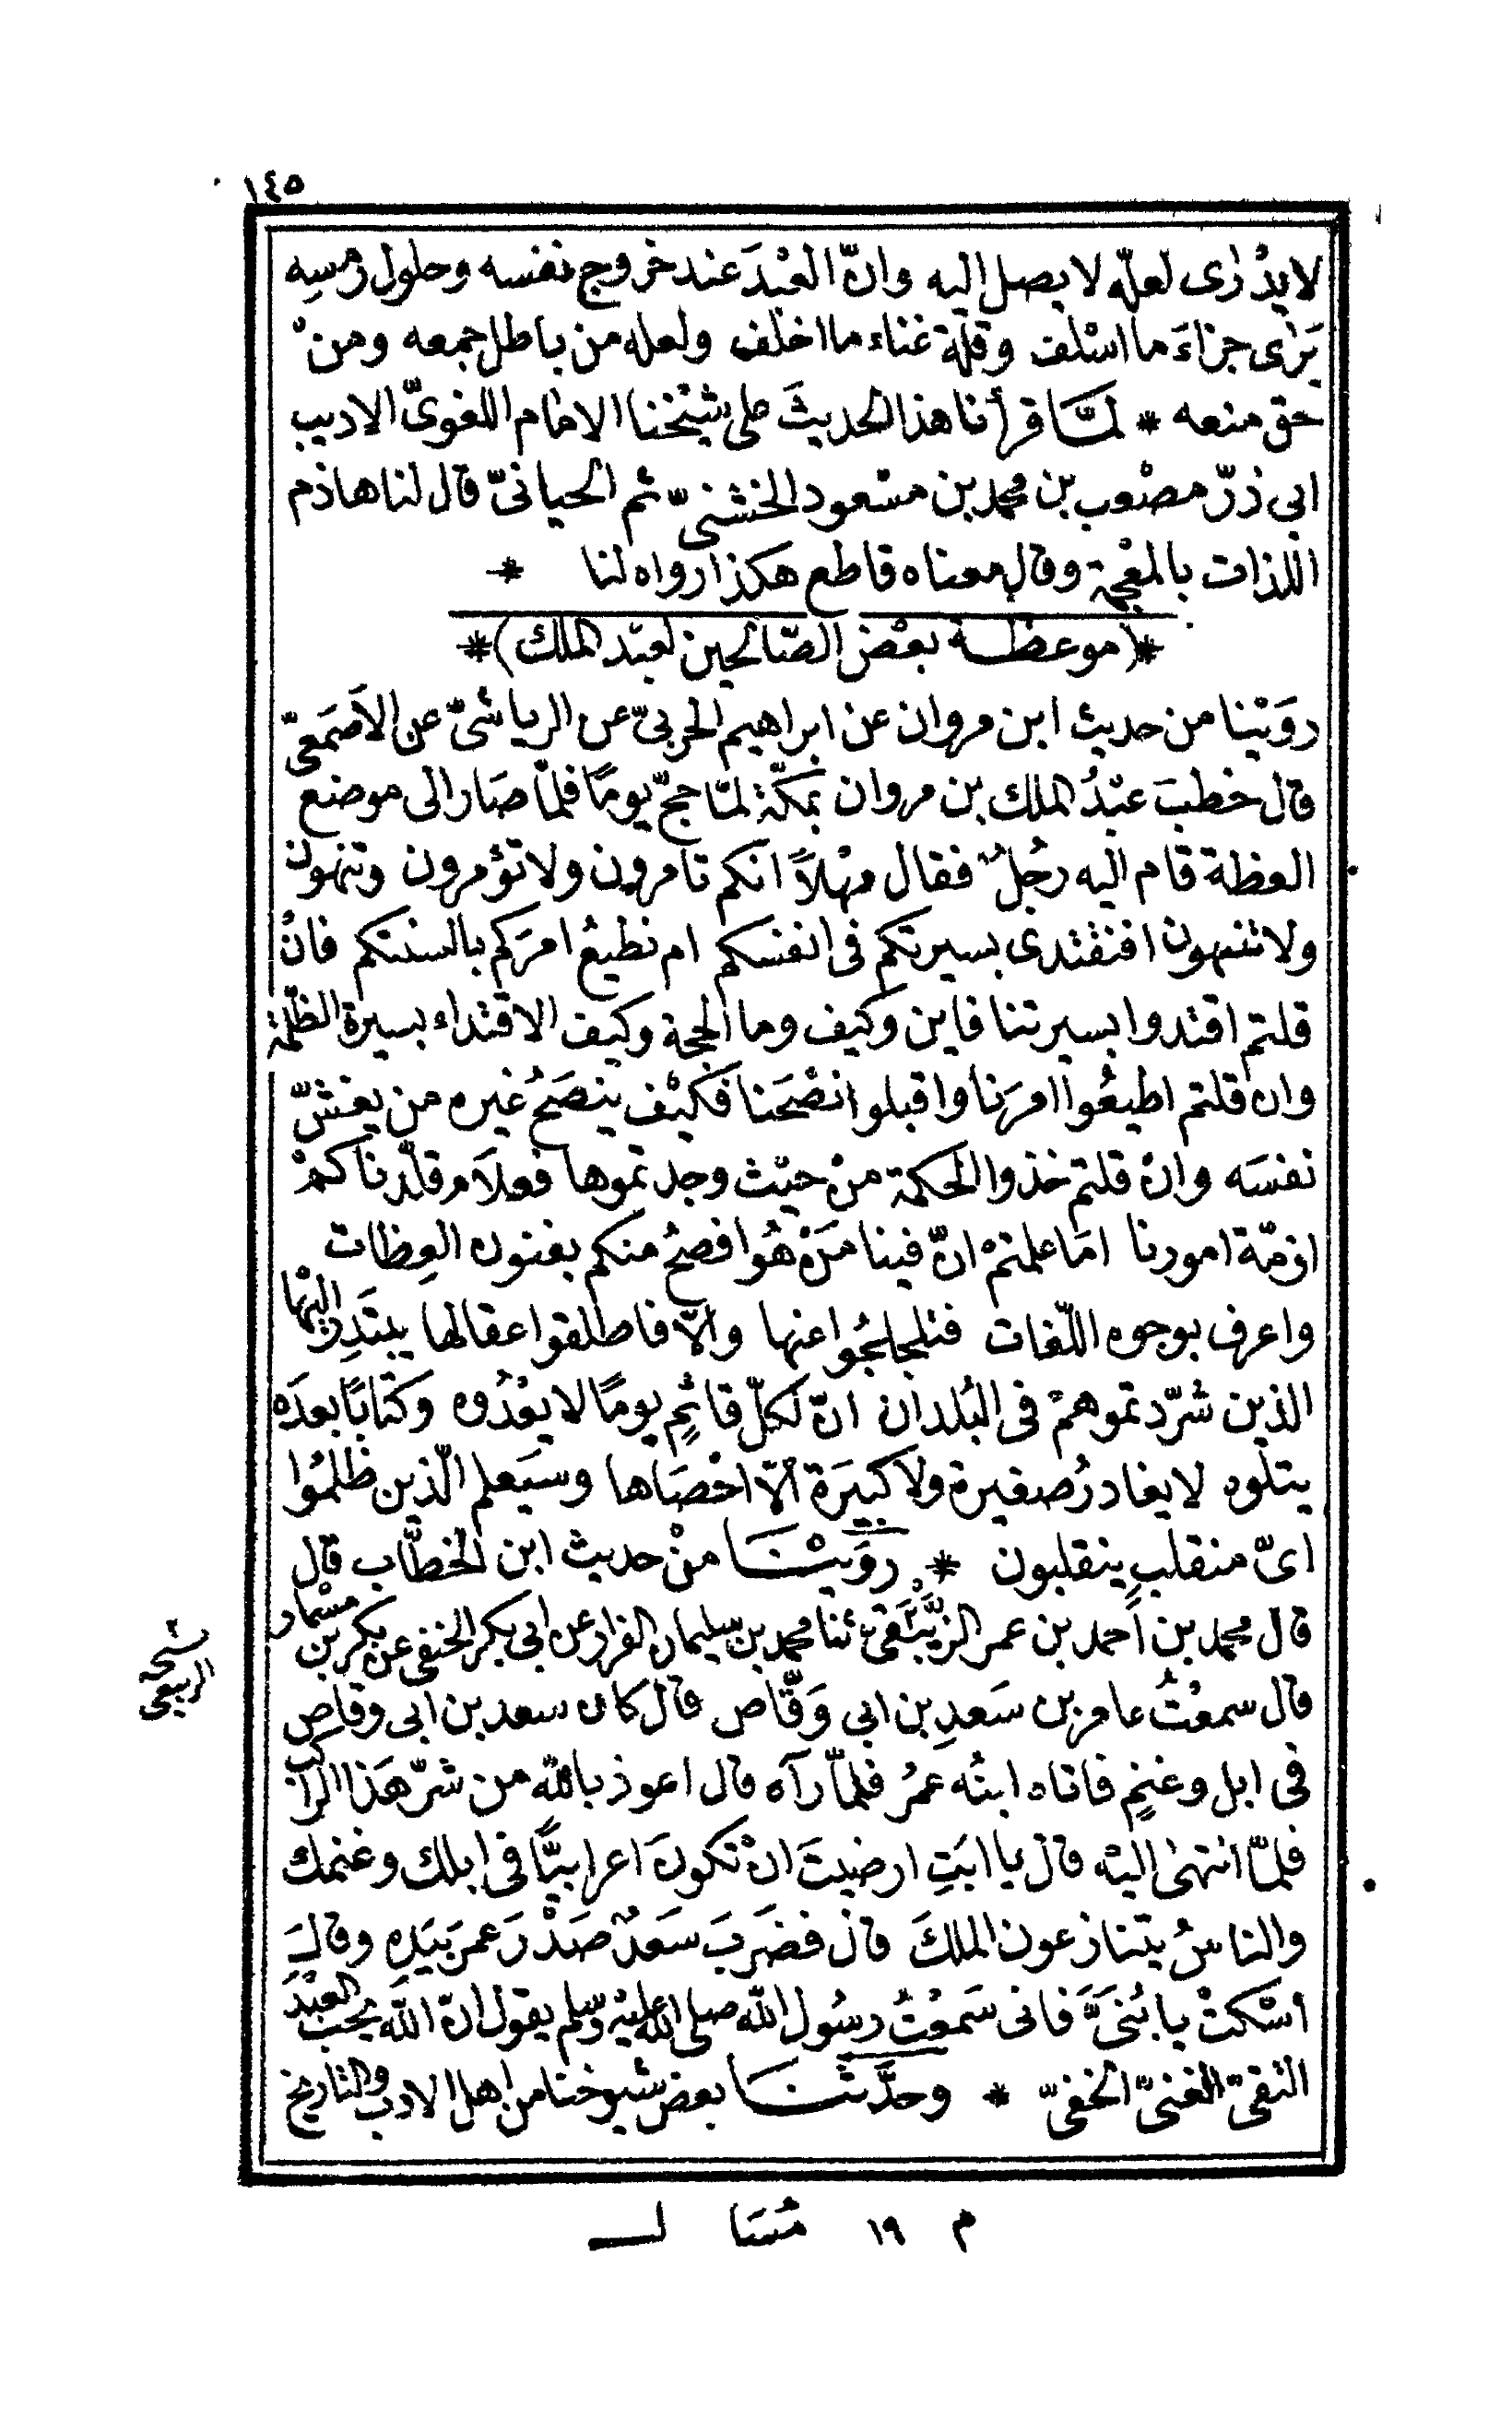 ١٤٥
لا يدْرٰى لعلّه لا يصل اليه وانّ العَبْدَ عند خروج نفسه وحلول رمسِهِ
يَرٰى جزاءَ ما اسْلف وقلّة غناء ما اخلف ولعله من باطل جمعه ومنْ
حق منعه * لمَّا قرأنا هذا الحديثَ على شيْخنا الامام اللغوىّ الاديب
ابى ذرّ مصْعب بن محمد بن مسْعود الخشنىّ ثم الحيانىّ قال لنا هاذم
اللذات بالمعْجمة وقال معناه قاطع هكذا رواه لنا *
*(موعظة بعْض الصّالحين لعبْد الملك)*
روَيْنا من حديث ابن مروان عن ابراهيم الحربىّ عن الرياشىّ عن الاَصمَعىّ
قال خطبَ عبْدُ الملك بن مروان بمكّة لمّا حجّ يومًا فلمّا صَار الى موضع
العظة قام اليه رجُلٌ فقال مهْلاً انكم تامرون ولا تؤمرون وتنهون
ولا تنتهون افنقتدى بسيرتكم فى انفسكم ام نطيعُ امرَكم بالسنتكم فانْ
قلتم اقتدوا بسيرتنا فاين وكيف وما الحجة وكيف الاقتداء بسيرة الظّلمة
وان قلتم اطيعُوا امرَنا واقبلوا نصْحَنا فكيْف ينصَحُ غيره من يغشّ
نفسَه وانْ قلتم خذوا الحكمة منْ حيْث وجدتموها فعلاَم قلّدناكمْ
ازمّة امورنا امَا علمتمْ انّ فينا مَنْ هُو افصحُ منكم بفنون العِظات
واعرف بوجوه اللّغات فتلجلجُوا عنها والاّ فاطلقوا عقالها يبتَدِر اليْها
الذين شرّدتموهمْ فى البُلدان انّ لكلّ قائمٍ يومًا لا يعْدُوه وكتابًا بعدَه
يتلوه لا يغادرُ صغيرة ولا كبيَرة الاّ احْصَاها وسيَعلم الّذين ظلمُوا
اىّ منقلبٍ ينقلبون * روَيْنَا منْ حديث ابن الخطّاب قال
قال محمد بن اَحمد بن عمر الزيْبَقىّ ثنا محمد بن سليمان القزاز عن ابى بكر الحنفى عن بكر بن مسْمار
نسخه
الربيعى
قال سمعْتُ عامر بن سَعدِ بن ابى وَقّاص قال كان سعد بن ابى وقاص
فى ابل وغنمٍ فاتاه ابنُه عمرُ فلمّا رآه قال اعوذ باللّه من شرّ هَذا الراكب
فلمّا انتهٰى اليْه قال يا ابَتِ ارضيتَ انْ تكونَ اعرابيًّا فى ابلك وغنمك
والناسُ يتنازعون الملكَ قال فضَربَ سَعدٌ صَدْرَ عمرَ بيَدِه وقالَ
اسْكتْ يا بُنَىَّ فانى سَمعْتُ رسُول اللّه صلى اللّه عليْه وسلم يقول انّ اللّهَ يُحبّ العَبْدَ
التقىّ الغنىّ الخفىّ * وحدَّثنَا بعض شيوخنا من اهل الادب والتاريخ
م ١٩ مُسَا ل